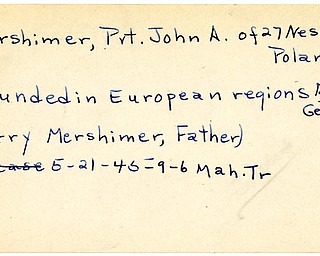 rshimer, Pvt. John A. of 27 Nes
Polan
unded in European regions
Ge
rry Mershimer, Father)
ease 5-21-45=9-6 Mah. Tr